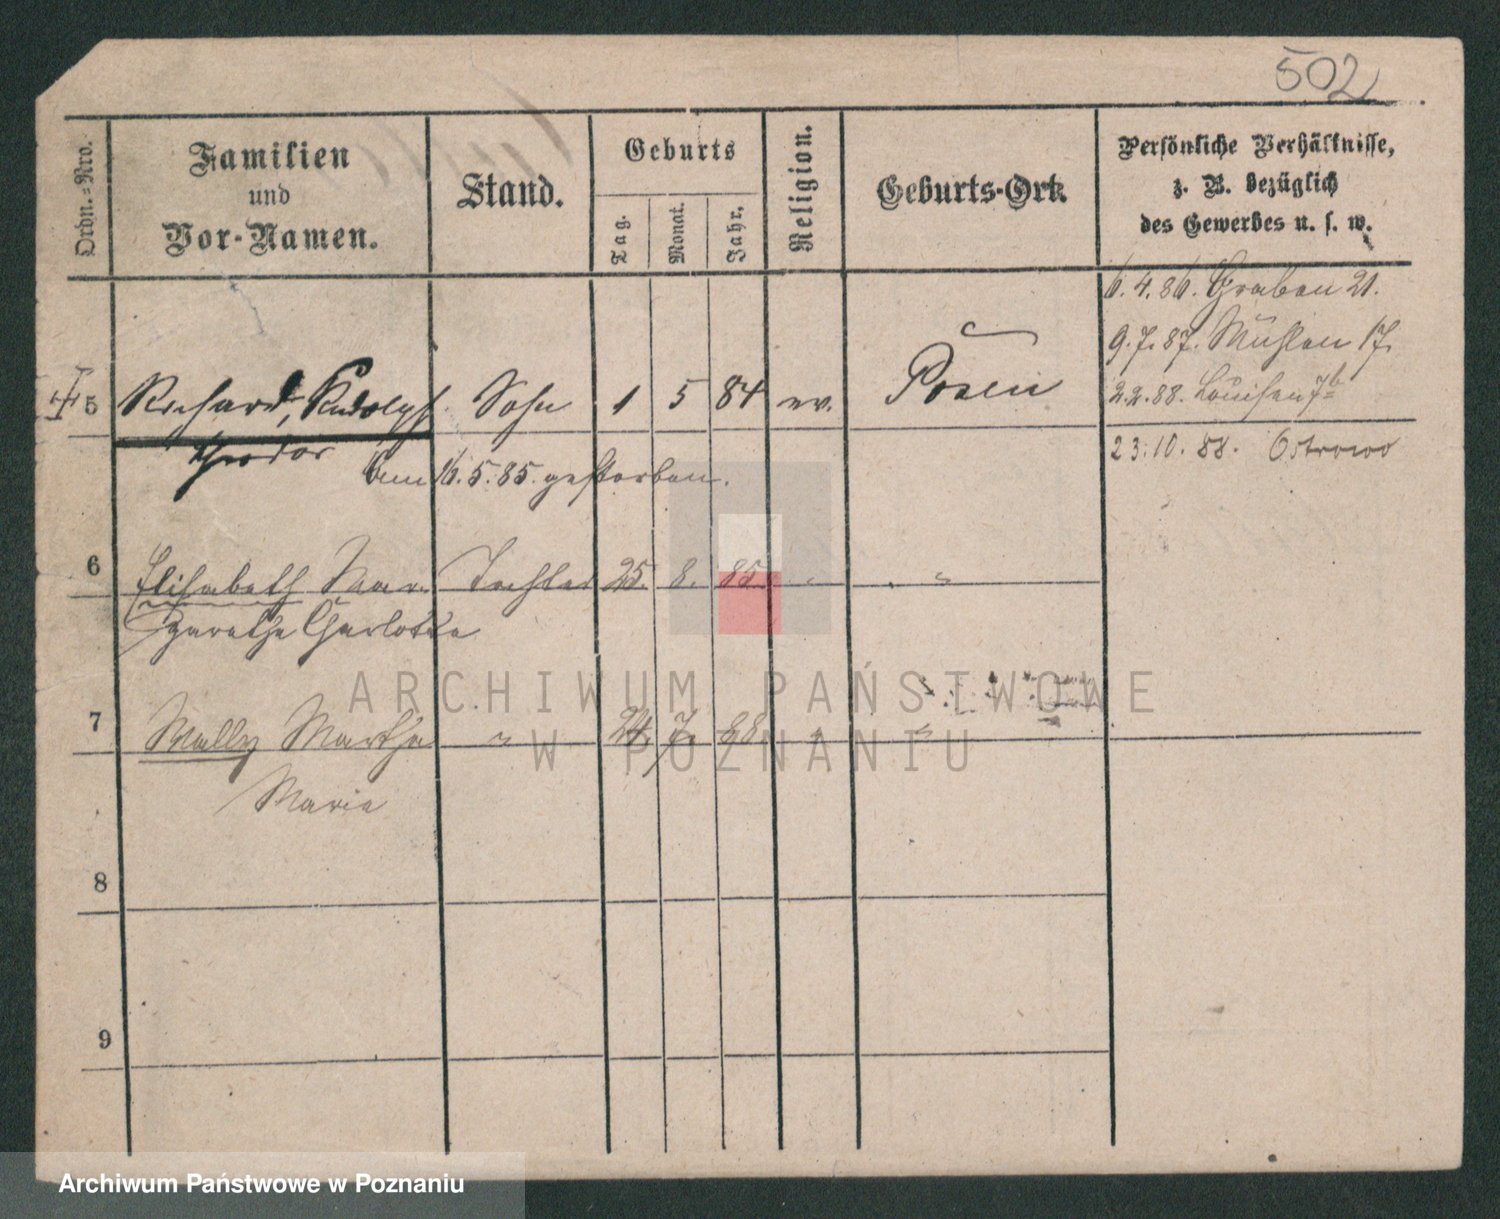 502
Ordn.-Nro.
Familien
und
Vor-Namen.
Stand.
Geburts
Tag.
Monat.
Jahr.
Religion.
Geburts-Ort.
Persönliche Verhältnisse,
z. B. bezüglich
des Gewerbes u. s. w.
6.4.86. Graben 21.
9.7.87. Mühlen 17.
5 Richard, Rudolph Sohn 1 5 84 ev. Posen
2.2.88. Louisen 7b
Theodor
23.10.88. Ostrowo
am 16.5.85. gestorben.
6 Elisabeth Mar- Tochter 25. 8. 85. " "
garethe Charlotte
7 Wally Martha " 24. 7. 88 " "
Maria
8
9
ARCHIWUM PAŃSTWOWE
W POZNANIU
Archiwum Państwowe w Poznaniu